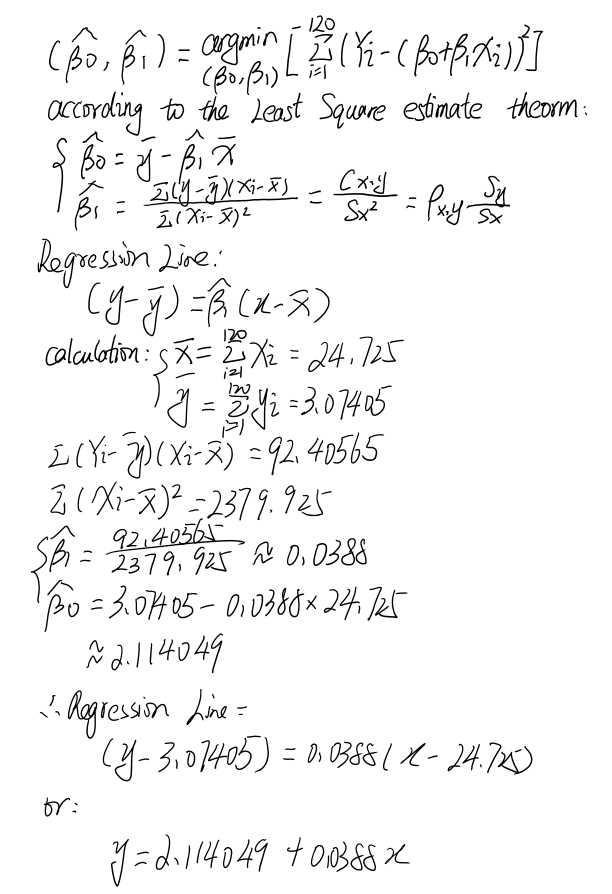 (β̂0, β̂1) = argmin(β0,β1) [ Σ_{i=1}^{120} (Yi - (β0+β1Xi))² ]
according to the Least Square estimate theorm:
{ β̂0 = ȳ - β̂1 x̄
β̂1 = Σ(y-ȳ)(xi-x̄) / Σ(Xi-x̄)² = Cx,y / Sx² = ρx,y Sy/Sx
Regression Line:
(y-ȳ) = β̂1 (x-x̄)
calculation: { x̄ = Σ_{i=1}^{120} Xi = 24.725
ȳ = Σ_{i=1}^{120} yi = 3.07405
Σ(Yi-ȳ)(Xi-x̄) = 92.40565
Σ(Xi-x̄)² = 2379.925
{ β̂1 = 92.40565 / 2379.925 ≈ 0.0388
β̂0 = 3.07405 - 0.0388 × 24.725
≈ 2.114049
∴ Regression Line =
(y - 3.07405) = 0.0388 (x - 24.725)
or:
y = 2.114049 + 0.0388 x